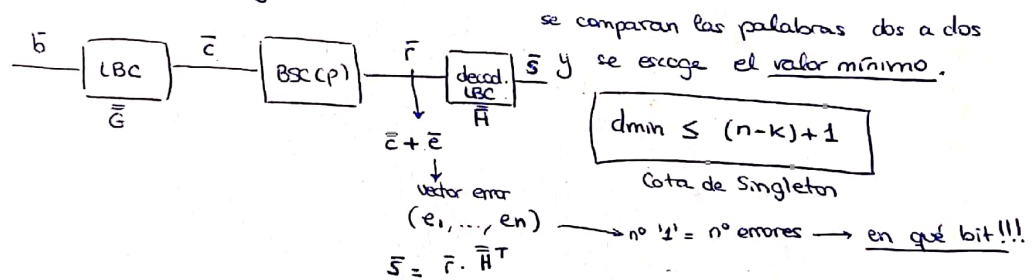 se comparan las palabras dos a dos
y se escoge el valor mínimo.
b̄ LBC c̄ BSC(p) r̄ decod. LBC s̄
G̿ H̿
c̄ + ē
dmin ≤ (n-k)+1
Cota de Singleton
vector error
(e₁,..., en) → nº '1' = nº errores → en qué bit!!!
s̄ = r̄ · H̿ᵀ